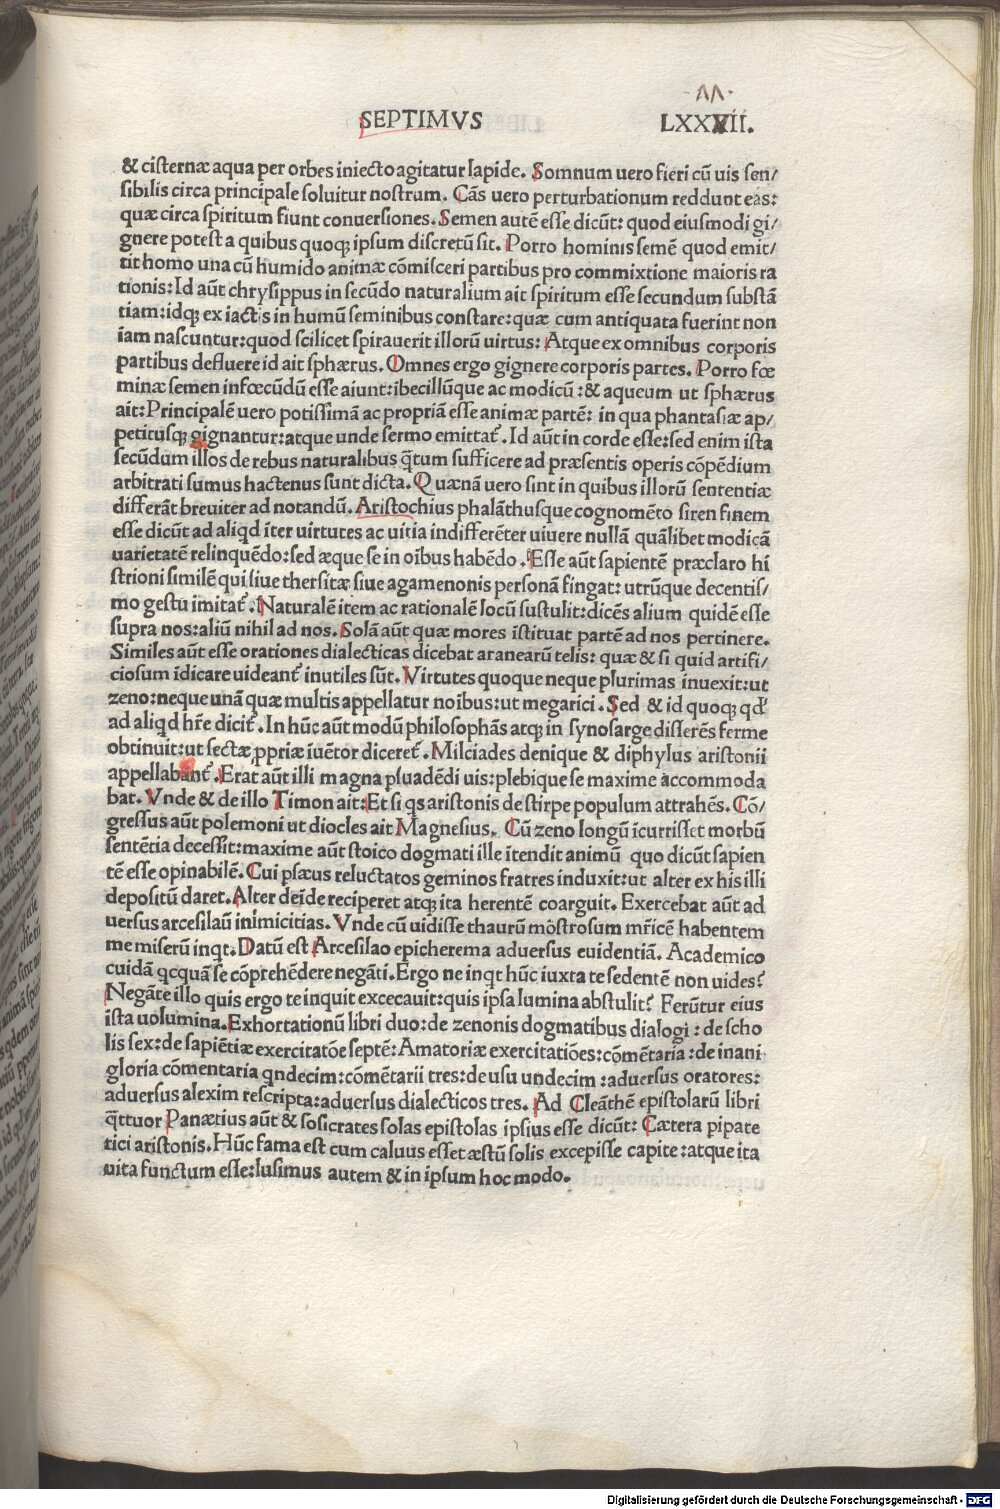 SEPTIMVS
LXXXVII.
& cisternæ aqua per orbes iniecto agitatur lapide. Somnum uero fieri cū uis sen/
sibilis circa principale soluitur nostrum. Cās uero perturbationum reddunt eas:
quæ circa spiritum fiunt conuersiones. Semen autē esse dicūt: quod eiusmodi gi/
gnere potest a quibus quoqꝫ ipsum discretū sit. Porro hominis semē quod emit/
tit homo una cū humido animæ cōmisceri partibus pro commixtione maioris ra
tionis: Id aūt chrysippus in secūdo naturalium ait spiritum esse secundum substā
tiam: idqꝫ ex iactis in humū seminibus constare: quæ cum antiquata fuerint non
iam nascuntur: quod scilicet spirauerit illorū uirtus: Atque ex omnibus corporis
partibus defluere id ait sphærus. Omnes ergo gignere corporis partes. Porro fœ
minæ semen infœcūdū esse aiunt: ibecillūque ac modicū: & aqueum ut sphærus
ait: Principalē uero potissimā ac propriā esse animæ partē: in qua phantasiæ ap/
petitusqꝫ gignantur: atque unde sermo emittat᷑. Id aūt in corde esse: sed enim ista
secūdum illos de rebus naturalibus q̄tum sufficere ad præsentis operis cōpēdium
arbitrati sumus hactenus sunt dicta. Quænā uero sint in quibus illorū sententiæ
differāt breuiter ad notandū. Aristochius phalāthusque cognomēto siren finem
esse dicūt ad aliqd īter uirtutes ac uitia indifferēter uiuere nullā quālibet modicā
uarietatē relinquēdo: sed æque se in oībus habēdo. Esse aūt sapientē præclaro hi
strioni similē qui siue thersitæ siue agamenonis personā fingat: utrūque decentis/
mo gestu imitat᷑. Naturalē item ac rationalē locū sustulit: dicēs alium quidē esse
supra nos: aliū nihil ad nos. Solā aūt quæ mores īstituat partē ad nos pertinere.
Similes aūt esse orationes dialecticas dicebat aranearū telis: quæ & si quid artifi/
ciosum īdicare uideant᷑ inutiles sūt. Virtutes quoque neque plurimas inuexit: ut
zeno: neque unā quæ multis appellatur noībus: ut megarici. Sed & id quoqꝫ qd'
ad aliqd hr̄e dicit᷑. In hūc aūt modū philosophās atqꝫ in synosarge disserēs ferme
obtinuit: ut sectæ ꝓpriæ iuētor diceret᷑. Milciades denique & diphylus aristonii
appellabant᷑. Erat aūt illi magna ꝑsuadēdi uis: plebique se maxime accommoda
bat. Vnde & de illo Timon ait: Et si qs aristonis de stirpe populum attrahēs. Cō/
gressus aūt polemoni ut diocles ait Magnesius. Cū zeno longū īcurrisset morbū
sentētia decessit: maxime aūt stoico dogmati ille ītendit animū quo dicūt sapien
tē esse opinabilē. Cui ꝑsæus reluctatos geminos fratres induxit: ut alter ex his illi
depositū daret. Alter deīde reciperet atqꝫ ita herentē coarguit. Exercebat aūt ad
uersus arcesilaū inimicitias. Vnde cū uidisse thaurū mōstrosum mr̄icē habentem
me miserū inqt. Datū est Arcesilao epicherema aduersus euidentiā. Academico
cuidā qcquā se cōprehēdere negāti. Ergo ne inqt hūc iuxta te sedentē non uides?
Negāte illo quis ergo te inquit excecauit: quis ipsa lumina abstulit? Ferūtur eius
ista uolumina. Exhortationū libri duo: de zenonis dogmatibus dialogi: de scho
lis sex: de sapiētiæ exercitatōe septē: Amatoriæ exercitatiōes: cōmētaria: de inani
gloria cōmentaria qndecim: cōmētarii tres: de usu undecim: aduersus oratores:
aduersus alexim rescripta: aduersus dialecticos tres. Ad Cleāthē epistolarū libri
q̄ttuor Panætius aūt & sosicrates solas epistolas ipsius esse dicūt: Cætera pipate
tici aristonis. Hūc fama est cum caluus esset æstū solis excepisse capite: atque ita
uita functum esse: lusimus autem & in ipsum hoc modo.
Digitalisierung gefördert durch die Deutsche Forschungsgemeinschaft - DFG